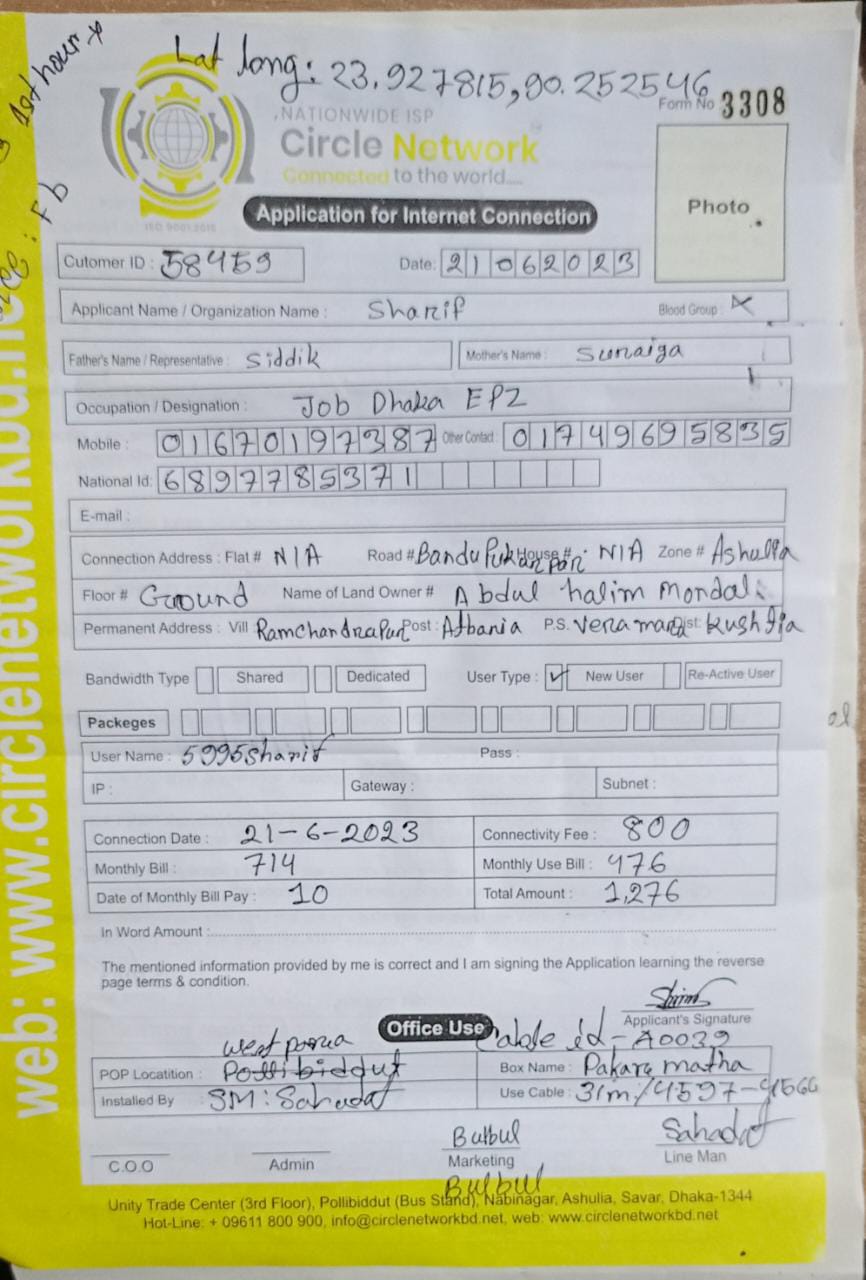 1st hour *
: Fb
Lat long: 23.927815,90.252546
Form No 3308
NATIONWIDE ISP
Circle Network
Connected to the world....
ISO 9001:2015
Photo
Application for Internet Connection
Cutomer ID : 58459 Date: 21062023
Applicant Name / Organization Name : Sharif Blood Group : X
Father's Name / Representative : Siddik Mother's Name : Suraiya
Occupation / Designation : Job Dhaka EPZ
Mobile : 01670197387 Other Contact : 01749695835
National Id: 6897785371
E-mail :
Connection Address : Flat # N/A Road # Bandu Pukur par House #: N/A Zone # Ashulia
Floor # Ground Name of Land Owner # Abdul halim Mondal.
Permanent Address : Vill Ramchandrapur Post : P.S. Veramara Dist: Kushtia
Bandwidth Type Shared Dedicated User Type : ✓ New User Re-Active User
Packeges
User Name : 5995sharif Pass :
IP : Gateway : Subnet :
Connection Date : 21-6-2023 Connectivity Fee : 800
Monthly Bill : 714 Monthly Use Bill : 476
Date of Monthly Bill Pay : 10 Total Amount : 1,276
In Word Amount :
The mentioned information provided by me is correct and I am signing the Application learning the reverse
page terms & condition.
Applicant's Signature
Office Use Cable id-A0039
west
POP Locatition : Pollibiddut Box Name : Pakara matha
Installed By SM: Sahadat Use Cable : 31m/4597-4566
Bulbul Sahadat
C.O.O Admin Marketing Line Man
Bulbul
Unity Trade Center (3rd Floor), Pollibiddut (Bus Stand), Nabinagar, Ashulia, Savar, Dhaka-1344
Hot-Line: + 09611 800 900, info@circlenetworkbd.net, web: www.circlenetworkbd.net
web: www.circlenetworkbd.ne